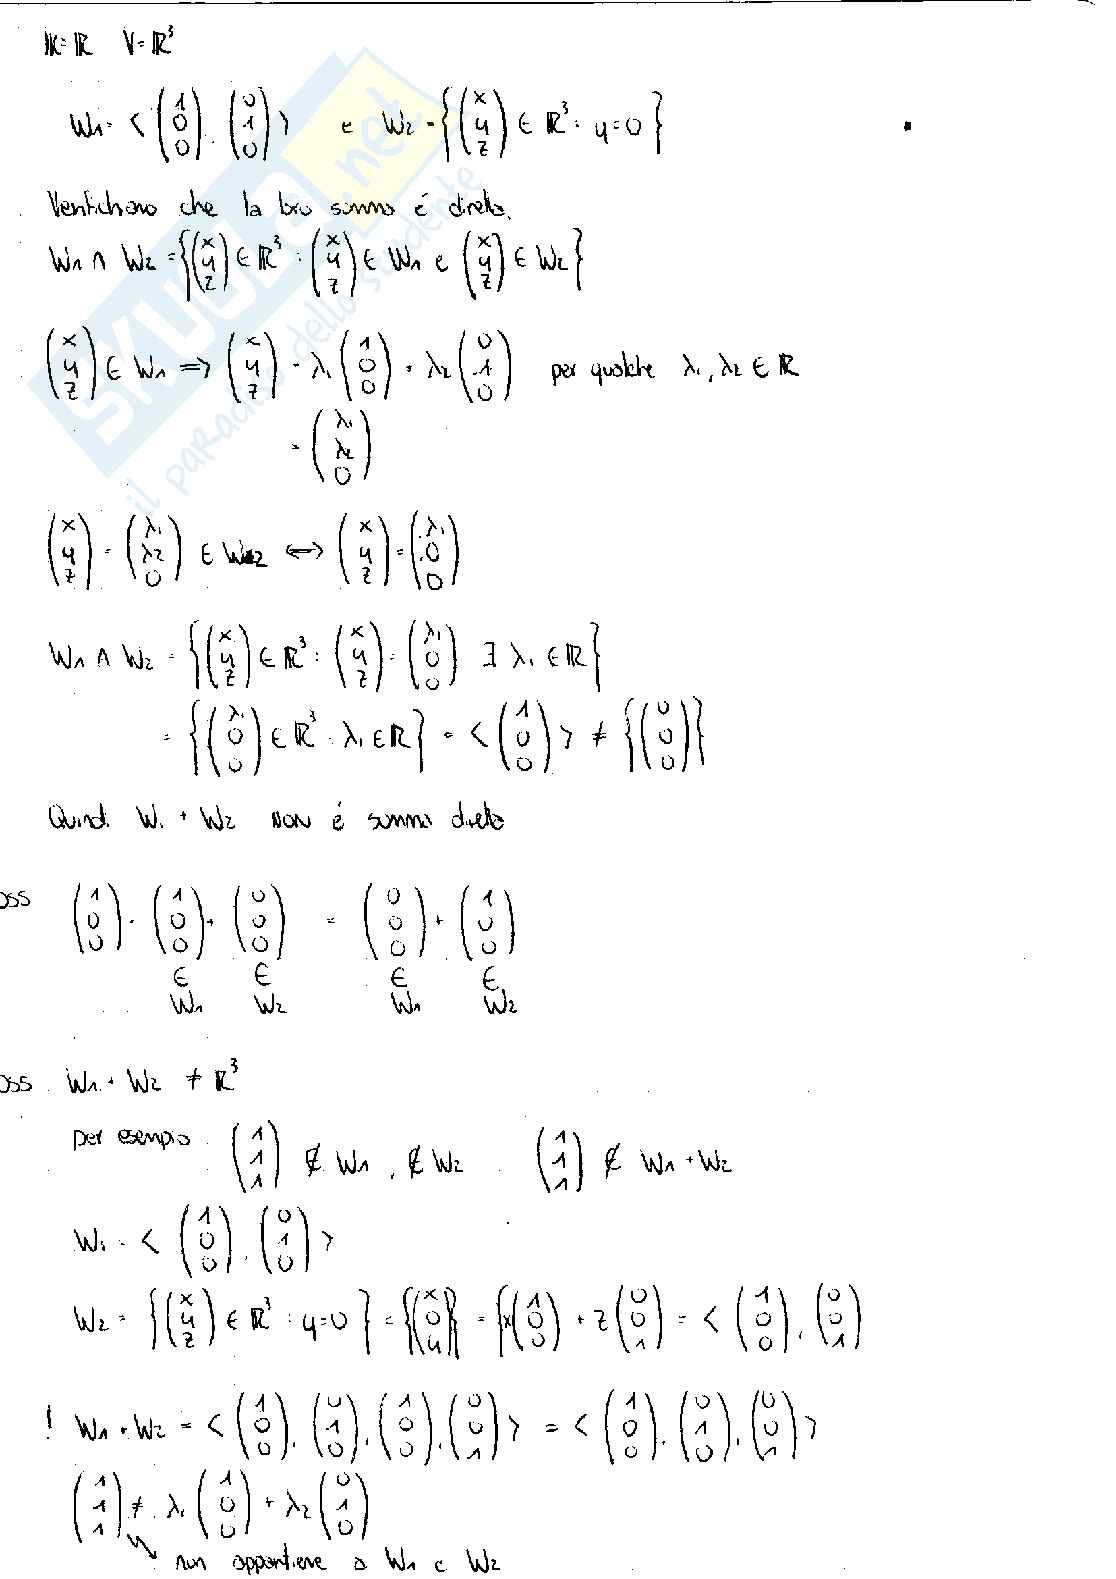 K=R V=R³
W₁ = < (1 0 0), (0 1 0) > e W₂ = { (x y z) ∈ R³ : y=0 }
Verifichiamo che la loro somma é diretta.
W₁ ∩ W₂ = { (x y z) ∈ R³ : (x y z) ∈ W₁ e (x y z) ∈ W₂ }
(x y z) ∈ W₁ ⇒ (x y z) = λ₁ (1 0 0) + λ₂ (0 1 0) per qualche λ₁, λ₂ ∈ R
= (λ₁ λ₂ 0)
(x y z) = (λ₁ λ₂ 0) ∈ W₂ ⇔ (x y z) = (λ₁ 0 0)
W₁ ∩ W₂ = { (x y z) ∈ R³ : (x y z) = (λ₁ 0 0) ∃ λ₁ ∈ R }
= { (λ₁ 0 0) ∈ R³ : λ₁ ∈ R } = < (1 0 0) > ≠ { (0 0 0) }
Quindi W₁ + W₂ NON é somma diretta
OSS (1 0 0) = (1 0 0) + (0 0 0) = (0 0 0) + (1 0 0)
∈ ∈ ∈ ∈
W₁ W₂ W₁ W₂
OSS. W₁ + W₂ ≠ R³
per esempio (1 1 1) ∉ W₁, ∉ W₂ (1 1 1) ∉ W₁ + W₂
W₁ = < (1 0 0), (0 1 0) >
W₂ = { (x y z) ∈ R³ : y=0 } = { (x 0 y) } = { x (1 0 0) + z (0 0 1) = < (1 0 0), (0 0 1)
! W₁ + W₂ = < (1 0 0), (0 1 0), (1 0 0), (0 0 1) > = < (1 0 0), (0 1 0), (0 0 1) >
(1 1 1) ≠ λ₁ (1 0 0) + λ₂ (0 1 0)
non appartiene a W₁ e W₂
SKUOLA.net
il paradiso dello studente